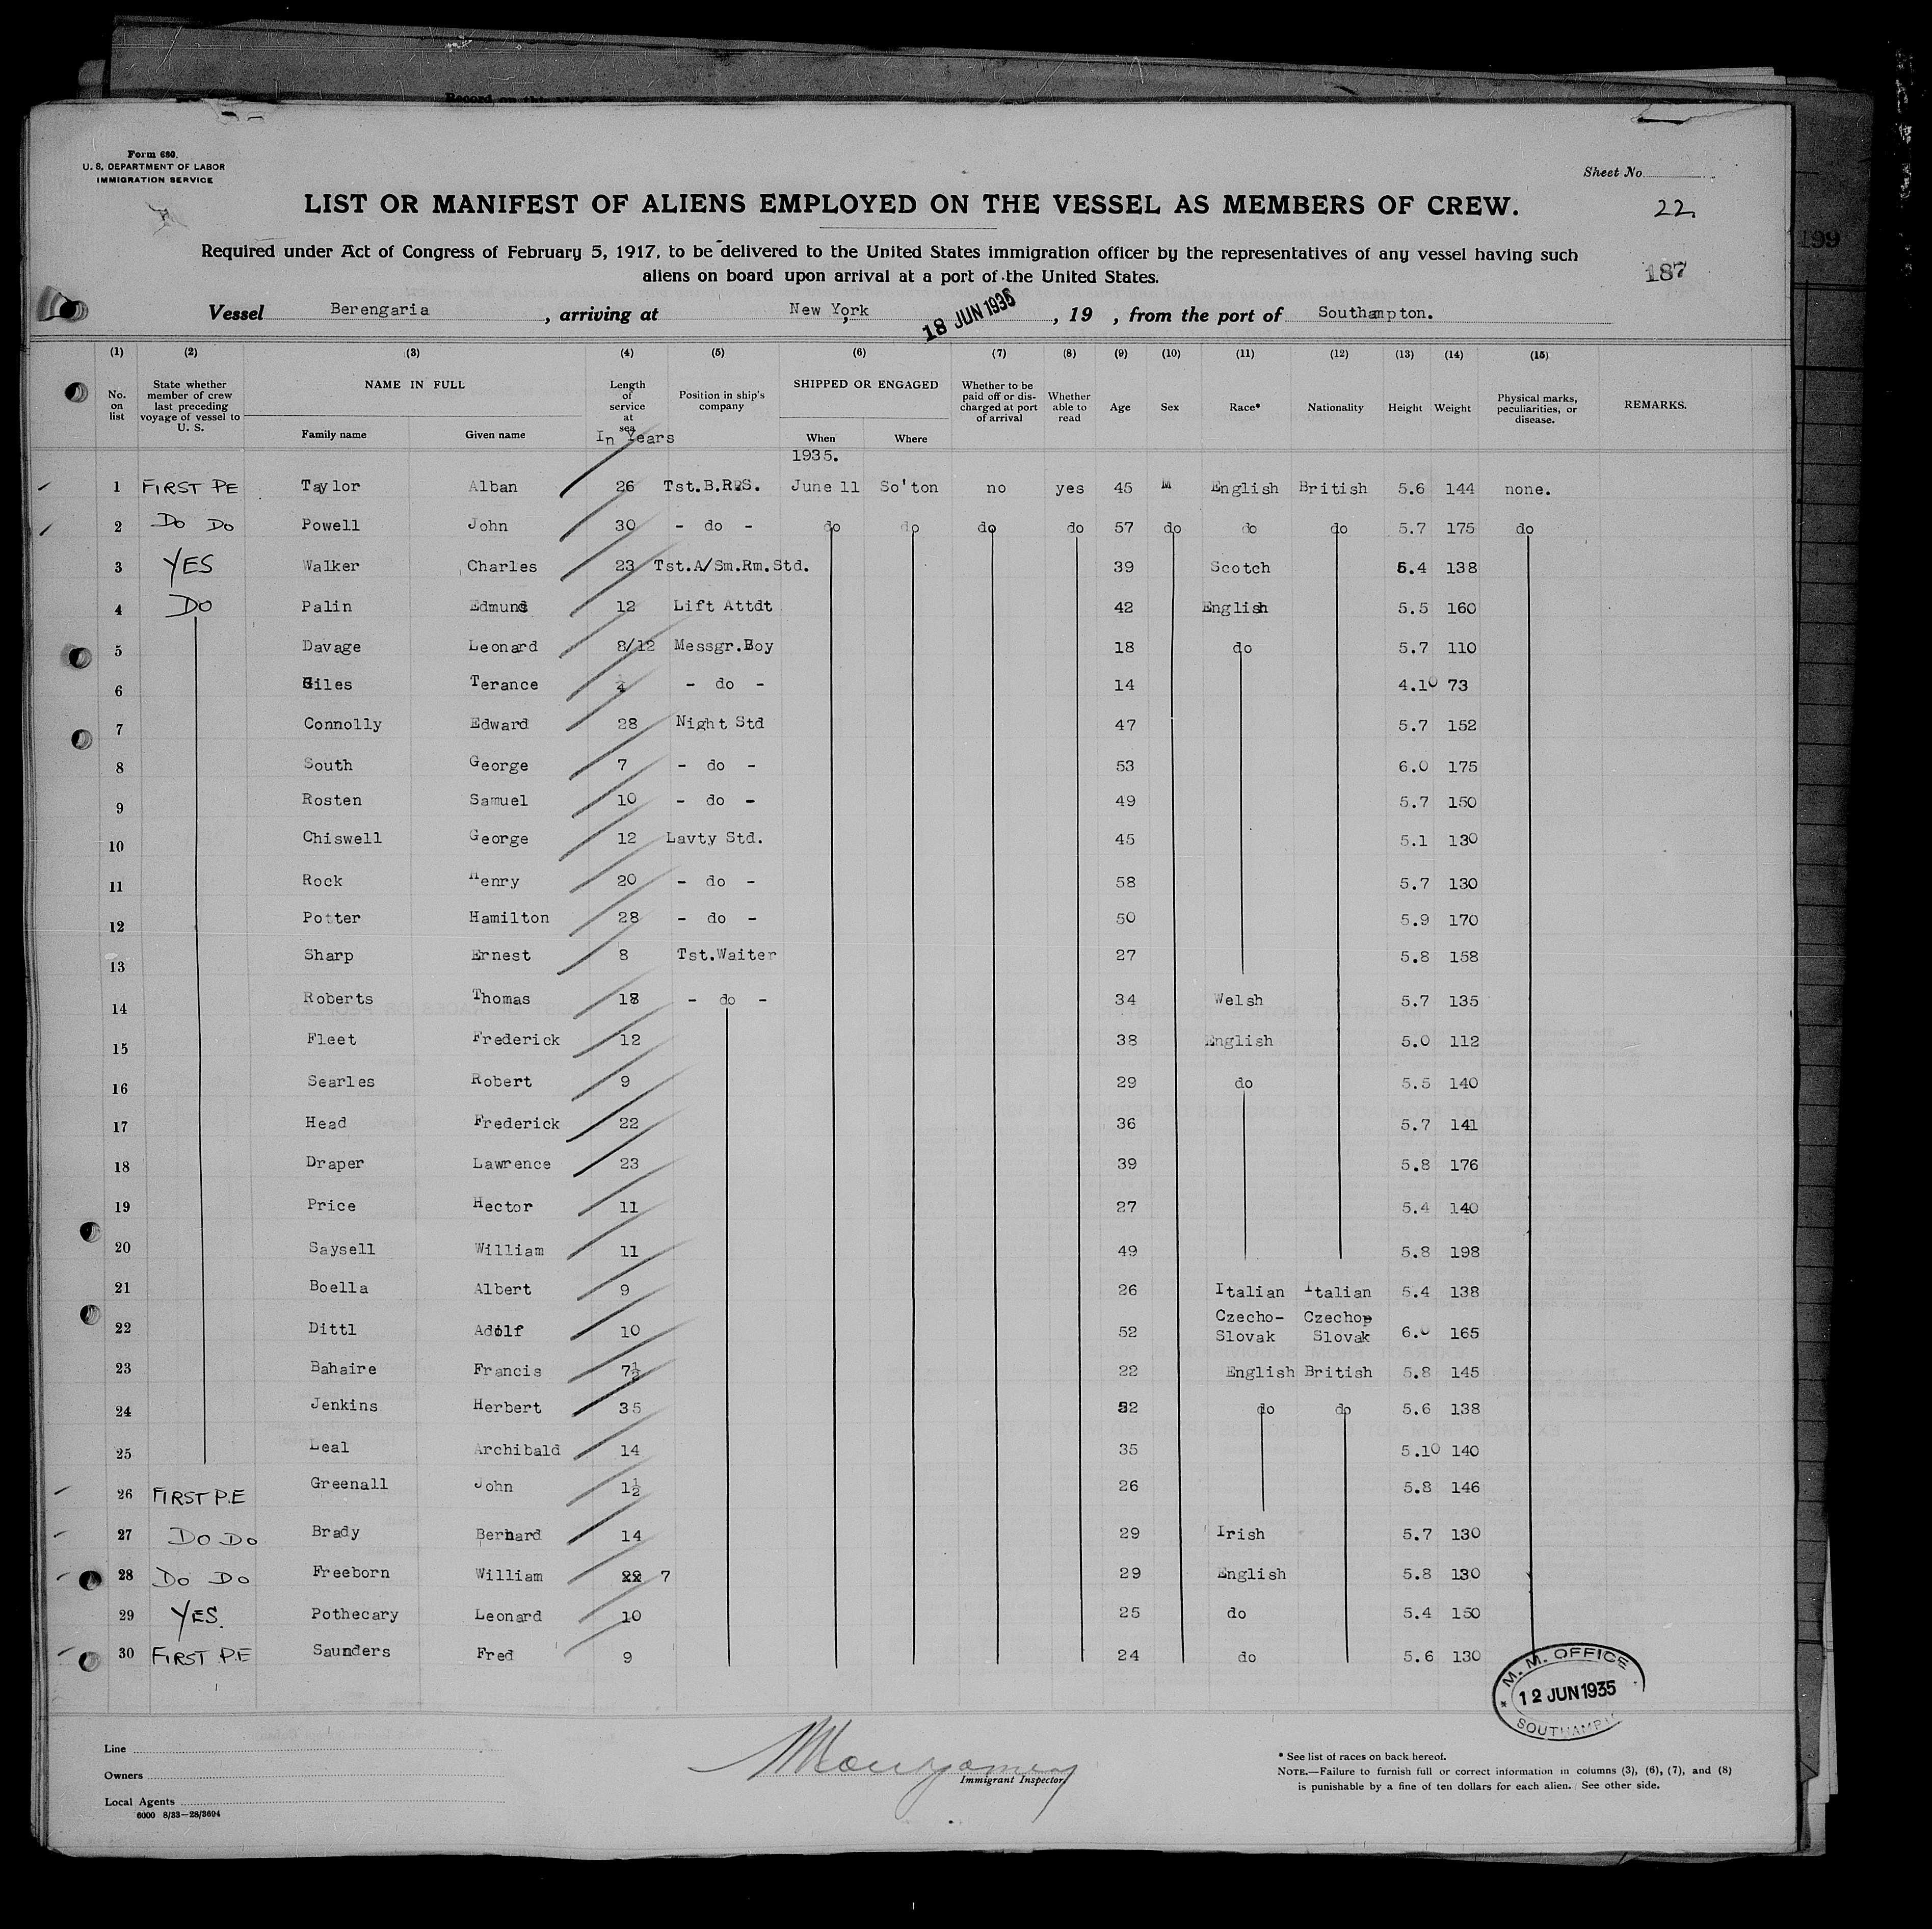 Form 680.
U. S. DEPARTMENT OF LABOR
IMMIGRATION SERVICE
Sheet No.
LIST OR MANIFEST OF ALIENS EMPLOYED ON THE VESSEL AS MEMBERS OF CREW.
22
Required under Act of Congress of February 5, 1917, to be delivered to the United States immigration officer by the representatives of any vessel having such
aliens on board upon arrival at a port of the United States.
187
199
Vessel Berengaria, arriving at New York, 18 JUN 1935, 19 , from the port of Southampton.
(1) (2) (3) (4) (5) (6) (7) (8) (9) (10) (11) (12) (13) (14) (15)
No. on list State whether member of crew last preceding voyage of vessel to U. S. NAME IN FULL Family name Given name Length of service at sea In Years Position in ship's company SHIPPED OR ENGAGED When Where Whether to be paid off or discharged at port of arrival Whether able to read Age Sex Race* Nationality Height Weight Physical marks, peculiarities, or disease. REMARKS.
1935.
1 FIRST PE Taylor Alban 26 Tst.B.R.S. June 11 So'ton no yes 45 M English British 5.6 144 none.
2 Do Do Powell John 30 - do - do do do do 57 do do do 5.7 175 do
3 YES Walker Charles 23 Tst.A/Sm.Rm.Std. 39 Scotch 5.4 138
4 DO Palin Edmund 12 Lift Attdt 42 English 5.5 160
5 Davage Leonard 8/12 Messgr.Boy 18 do 5.7 110
6 Giles Terance - do - 14 4.10 73
7 Connolly Edward 28 Night Std 47 5.7 152
8 South George 7 - do - 53 6.0 175
9 Rosten Samuel 10 - do - 49 5.7 150
10 Chiswell George 12 Lavty Std. 45 5.1 130
11 Rock Henry 20 - do - 58 5.7 130
12 Potter Hamilton 28 - do - 50 5.9 170
13 Sharp Ernest 8 Tst.Waiter 27 5.8 158
14 Roberts Thomas 18 - do - 34 Welsh 5.7 135
15 Fleet Frederick 12 38 English 5.0 112
16 Searles Robert 9 29 do 5.5 140
17 Head Frederick 22 36 5.7 141
18 Draper Lawrence 23 39 5.8 176
19 Price Hector 11 27 5.4 140
20 Saysell William 11 49 5.8 198
21 Boella Albert 9 26 Italian Italian 5.4 138
22 Dittl Adolf 10 52 Czecho-Slovak Czecho Slovak 6.0 165
23 Bahaire Francis 7½ 22 English British 5.8 145
24 Jenkins Herbert 35 52 do do 5.6 138
25 Leal Archibald 14 35 5.10 140
26 FIRST P.E Greenall John 1½ 26 5.8 146
27 Do Do Brady Bernard 14 29 Irish 5.7 130
28 Do Do Freeborn William 7 29 English 5.8 130
29 YES. Pothecary Leonard 10 25 do 5.4 150
30 FIRST P.E Saunders Fred 9 24 do 5.6 130
M. M. OFFICE
12 JUN 1935
Line
Owners
Local Agents
6000 8/33-28/3694
Montgomery
Immigrant Inspector
* See list of races on back hereof.
NOTE.—Failure to furnish full or correct information in columns (3), (6), (7), and (8)
is punishable by a fine of ten dollars for each alien. See other side.